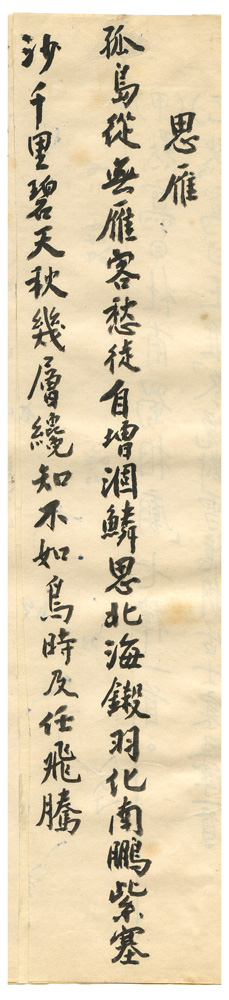 思雁
孤島從無雁客愁徒自增涸鱗思北海鎩羽化南鵬紫塞
沙千里碧天秋幾層纔知不如鳥時及任飛騰